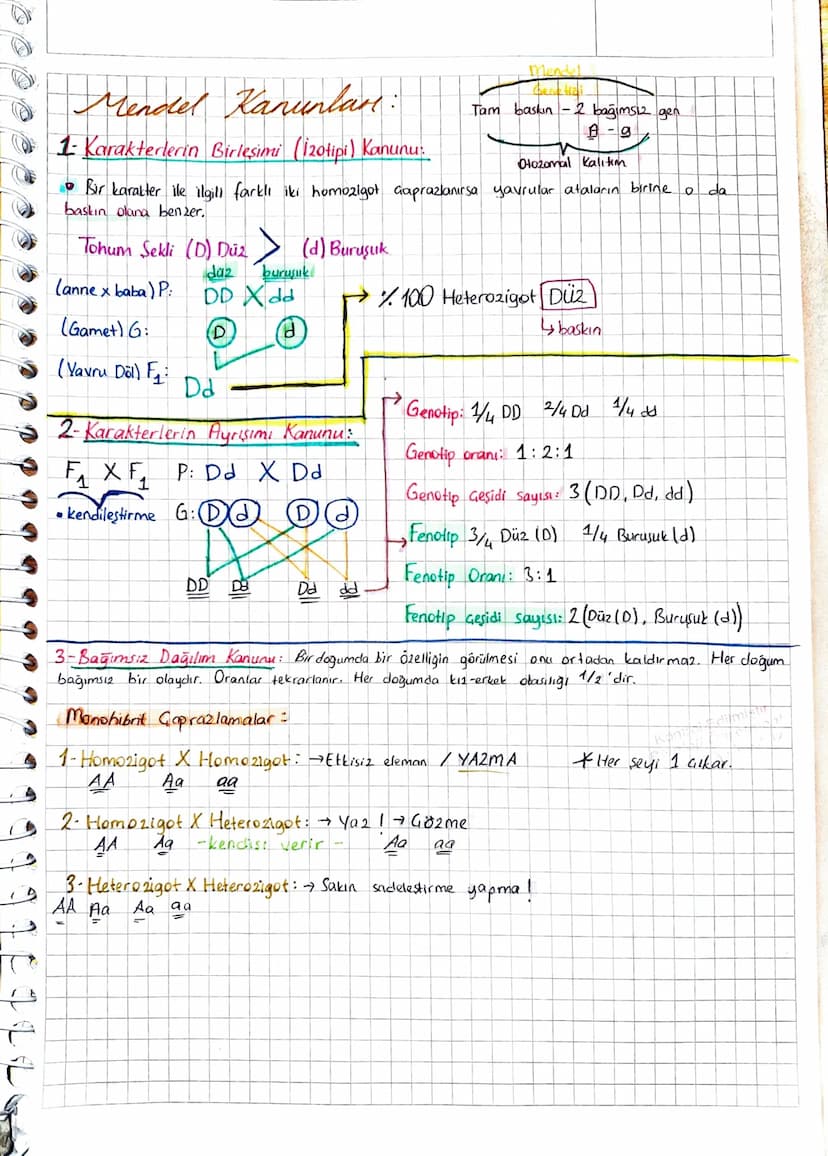 Mendel
Genetiği
Mendel Kanunları:
Tam baskın - 2 bağımsız gen
A - a
Otozomal Kalıtım
1- Karakterlerin Birleşimi (İzotipi) Kanunu:
• Bir karakter ile ilgili farklı iki homozigot çaprazlanırsa yavrular ataların birine o da
baskın olana benzer.
Tohum Şekli (D) Düz > (d) Buruşuk
düz buruşuk
(anne x baba) P: DD X dd
% 100 Heterozigot Düz
↳ baskın
(Gamet) G: D d
(Yavru Döl) F1: Dd
2- Karakterlerin Ayrışımı Kanunu:
F1 X F1 P: Dd X Dd
• kendileştirme G: D d D d
DD Dd Dd dd
Genotip: 1/4 DD 2/4 Dd 1/4 dd
Genotip oranı: 1:2:1
Genotip Çeşidi sayısı: 3 (DD, Dd, dd)
Fenotip 3/4 Düz (D) 1/4 Buruşuk (d)
Fenotip Oranı: 3:1
Fenotip çeşidi sayısı: 2 (Düz (D), Buruşuk (d))
3- Bağımsız Dağılım Kanunu: Bir doğumda bir özelliğin görülmesi onu ortadan kaldırmaz. Her doğum
bağımsız bir olaydır. Oranlar tekrarlanır. Her doğumda kız-erkek olasılığı 1/2'dir.
Monohibrit Çaprazlamalar:
1- Homozigot X Homozigot: → Etkisiz eleman / YAZMA * Her şeyi 1 çıkar.
AA Aa aa
2- Homozigot X Heterozigot: → Yaz! → Çözme
AA Aa -kendisi verir- Aa aa
3- Heterozigot X Heterozigot: → Sakın sadeleştirme yapma!
AA Aa Aa aa